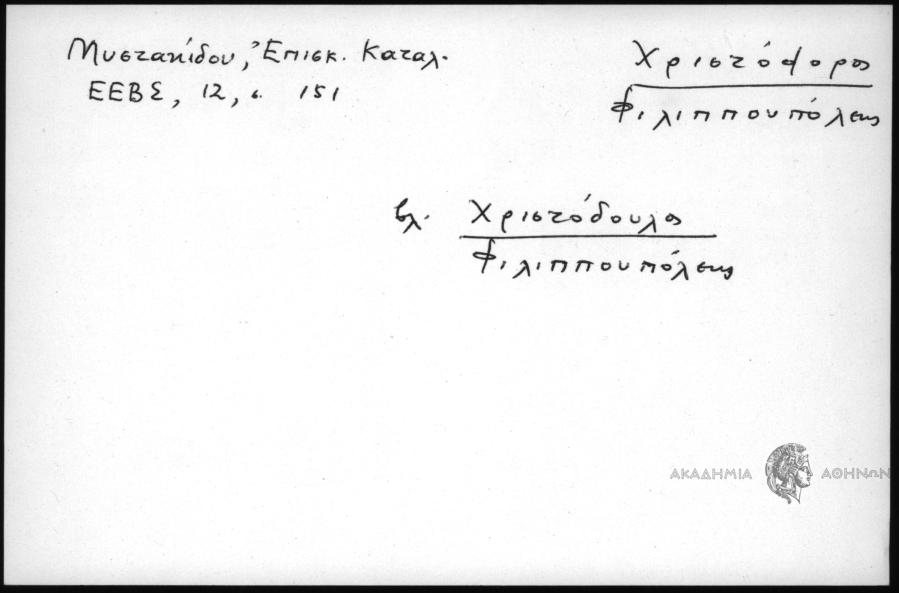 Μυστακίδου, Ἐπισκ. Καταλ.
ΕΕΒΣ, 12, σ. 151
Χριστόφορος
Φιλιππουπόλεως
βλ. Χριστόδουλος
Φιλιππουπόλεως
ΑΚΑΔΗΜΙΑ ΑΘΗΝΩΝ